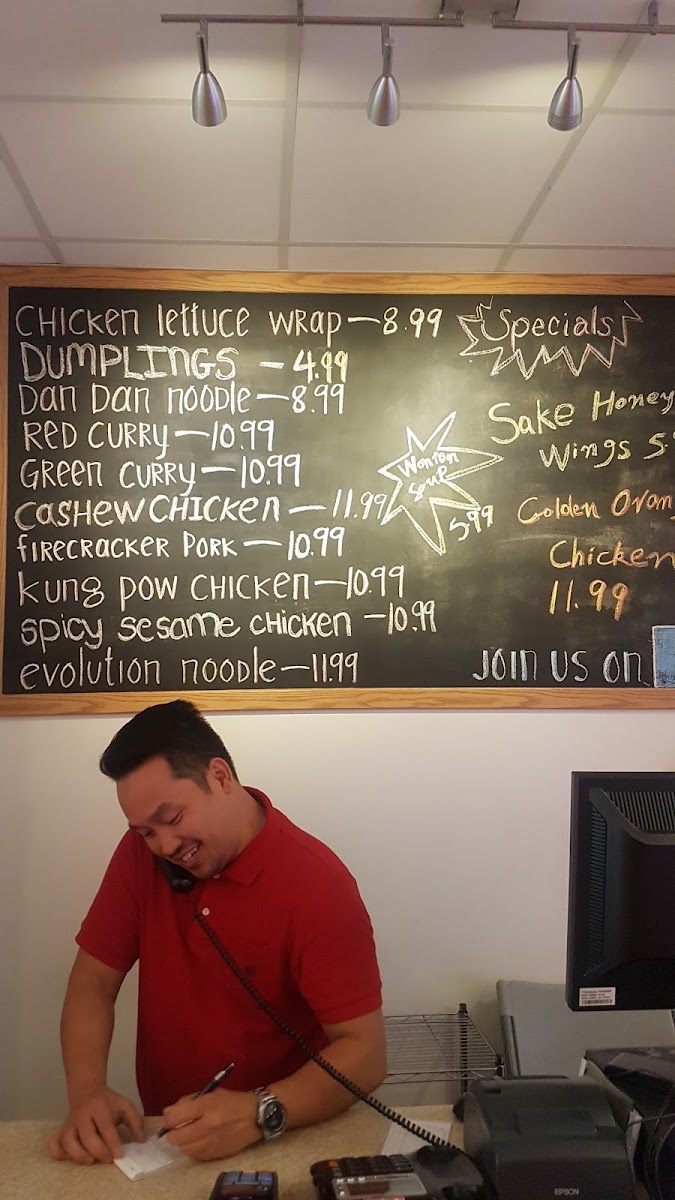 CHICKEN lettuce WRAP—8.99
DUMPLINGS — 4.99
Dan Dan noodle—8.99
RED CURRY—10.99
GREEN CURRY—10.99
CASHEW CHICKEN — 11.99
FIRECRACKER PORK — 10.99
kung pow CHICKEN—10.99
spicy sesame CHICKEN —10.99
evolution noodle—11.99
Wonton
Soup
5.99
Specials
Sake Honey
Wings 5.
Golden
Chicken
11.99
JOIN US ON
EPSON